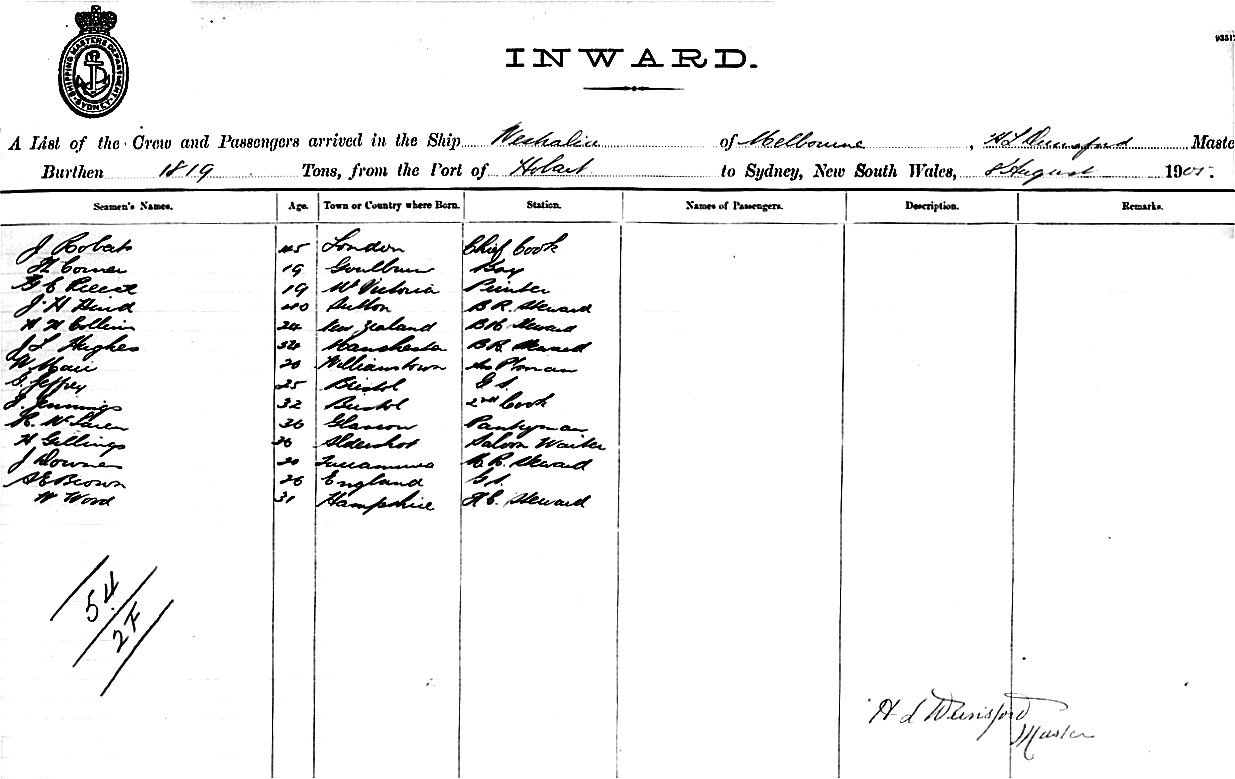 SHIPPING MASTERS DEPARTMENT SYDNEY
INWARD.
A List of the Crew and Passengers arrived in the Ship Westralia of Melbourne, H L Dunsford Maste
Burthen 1819 Tons, from the Port of Hobart to Sydney, New South Wales, 8 August 1905.
Seamen's Names. Age. Town or Country where Born. Station. Names of Passengers. Description. Remarks.
J Robats 45 London Chief Cook
Corner 19 Goulburn Boy
19 Mt Victoria Printer
J. H Hind 40 Sutton B R. Steward
H H Collins 24 New Zealand B R Steward
J L Hughes Manchester B R Steward
W Mair 20 Williamstown Ptman
G Jeffrey 25 Bristol G S.
J. Jennings 32 Bristol 2nd Cook
R. McLaren Glasgow Pantryman
H Gillings Aldershot Saloon Waiter
J Downes 20 R. Steward
S E Brown 26 England G S.
W Wood 31 Hampshire Steward
54
2F
H L Dunsford
Master